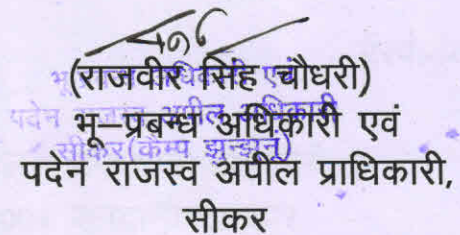 (राजवीर सिंह चौधरी)
भू–प्रबन्ध अधिकारी एवं
पदेन राजस्व अपील प्राधिकारी,
सीकर
भू प्रबन्ध अधिकारी एवं
पदेन राजस्व अपील अधिकारी
सीकर(कैम्प झुन्झुनू)